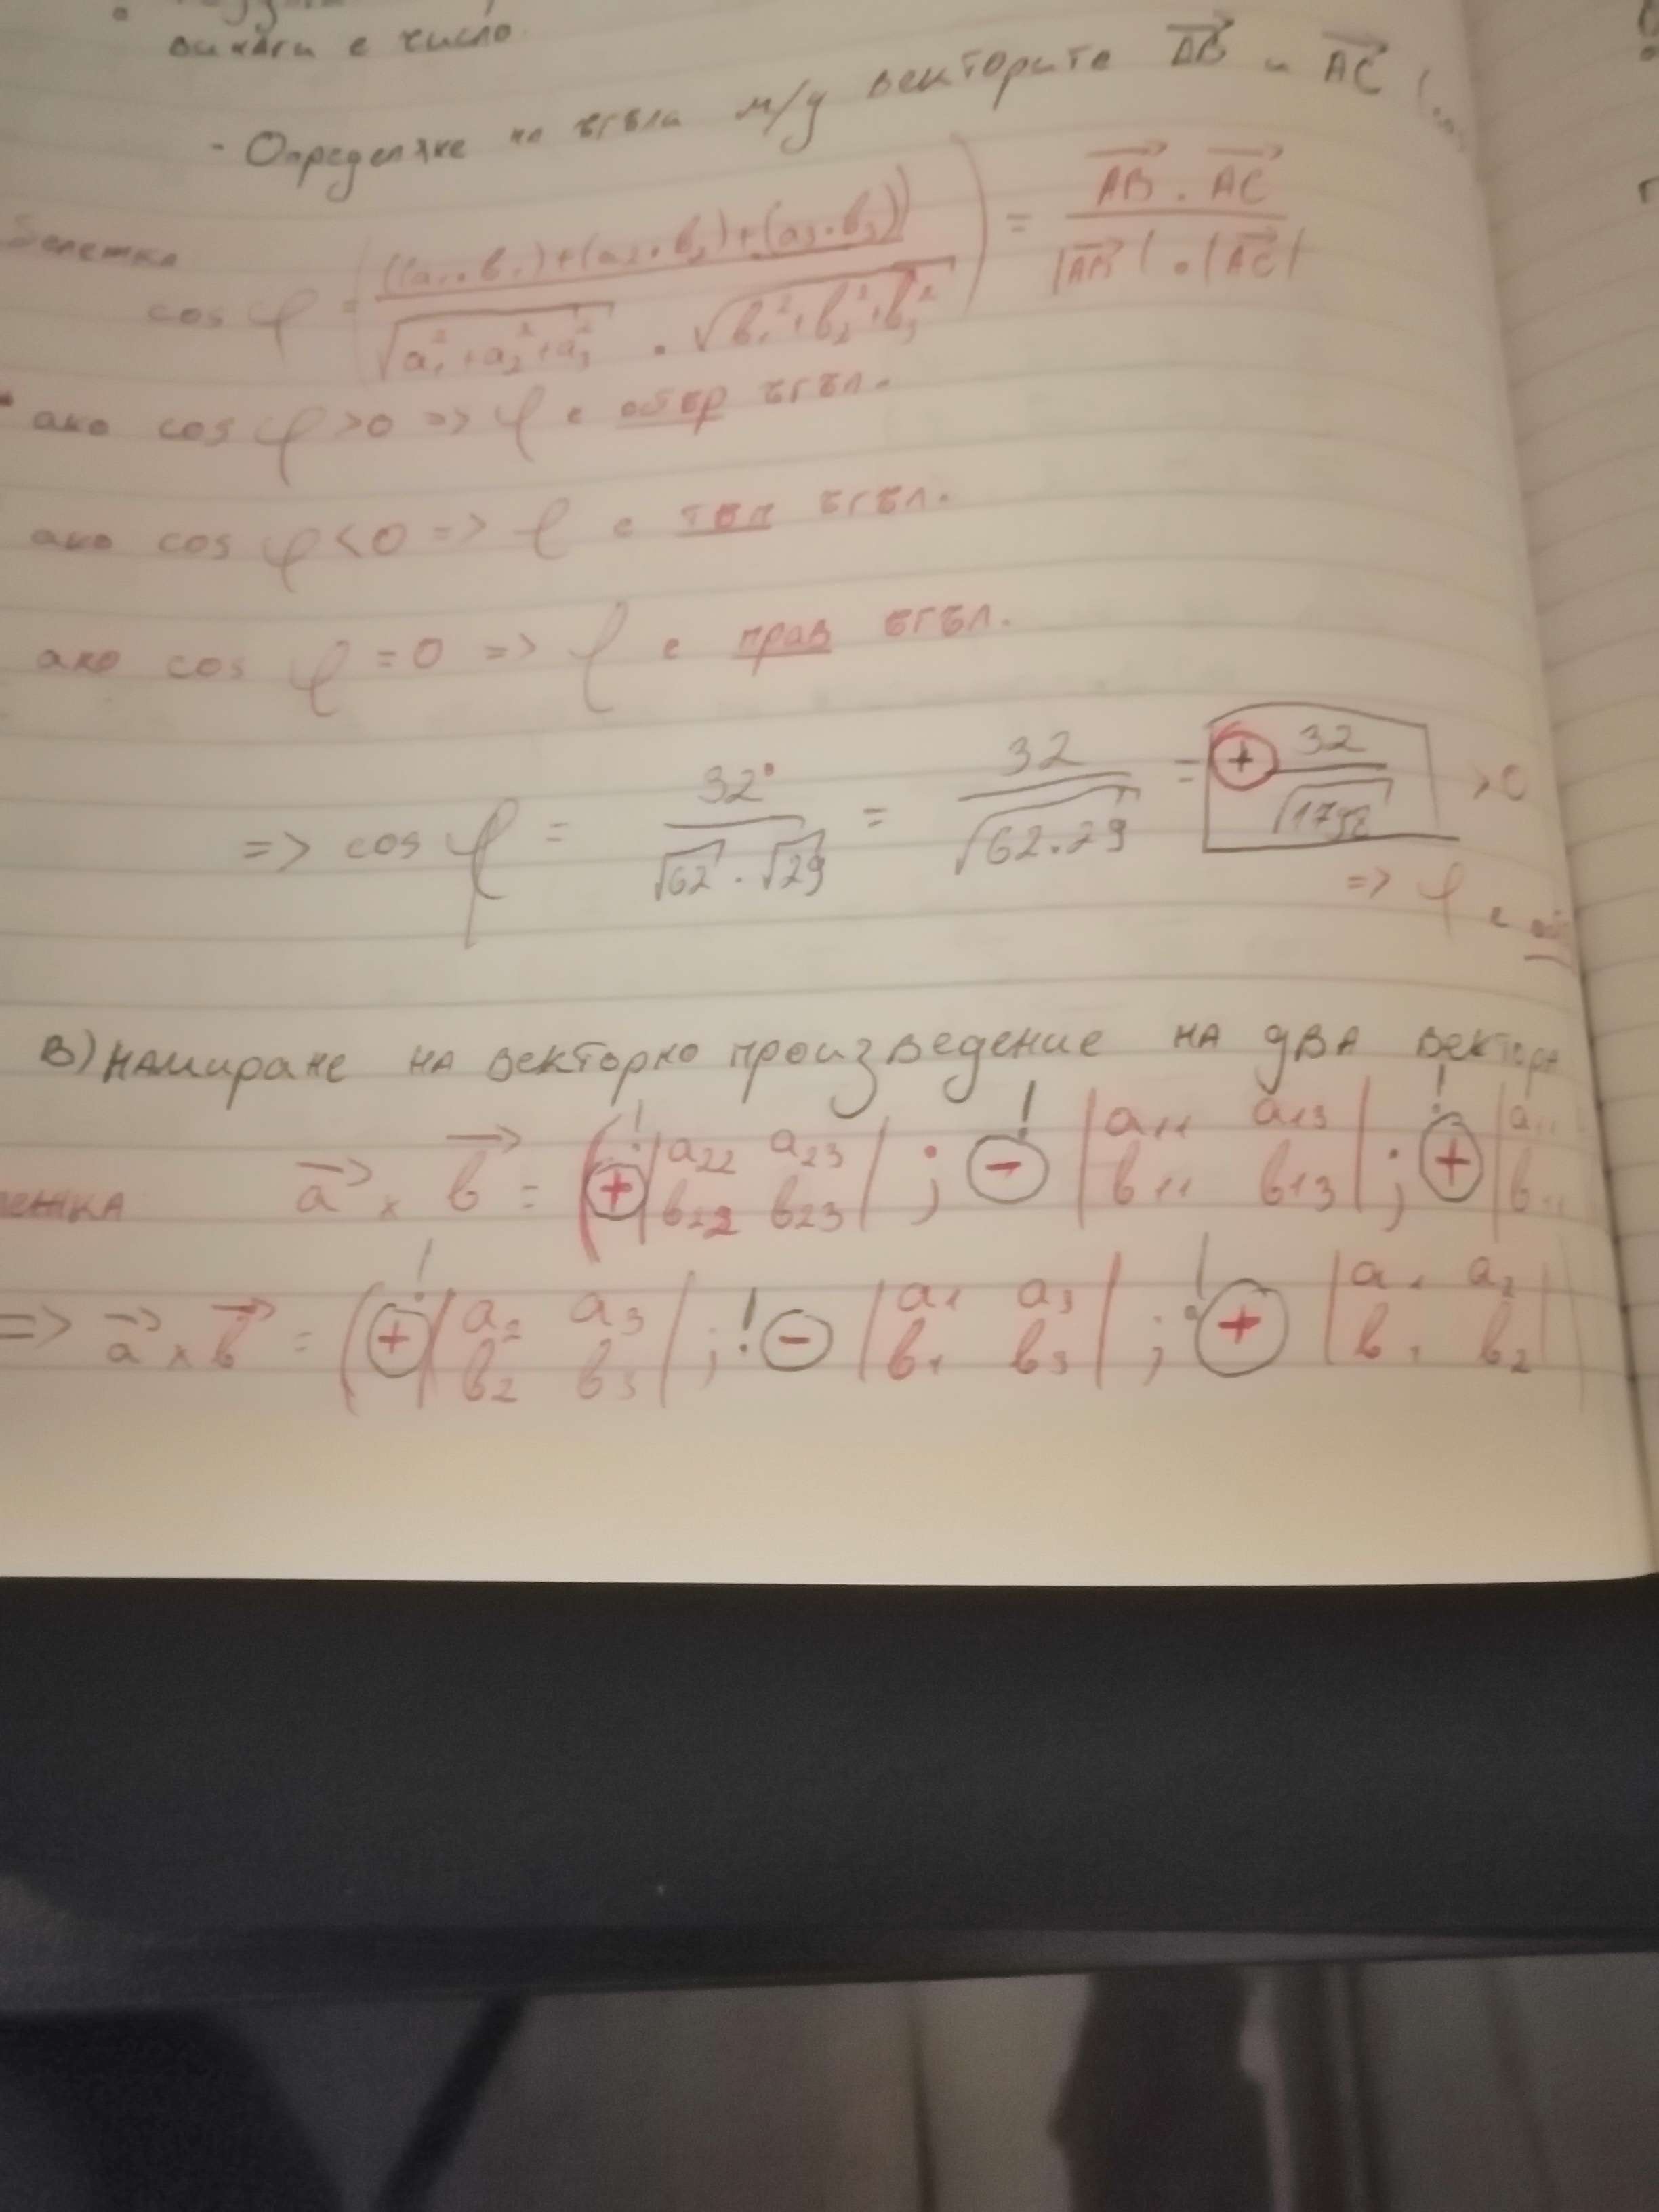 винаги е число.
- Определяне на ъгъла м/у векторите AB и AC
Бележка
cos φ = ((a₁.b₁)+(a₂.b₂)+(a₃.b₃)) / (√a₁²+a₂²+a₃² . √b₁²+b₂²+b₃²) = AB . AC / |AB| . |AC|
ако cos φ >0 => φ е остър ъгъл.
ако cos φ <0 => φ е тъп ъгъл.
ако cos φ =0 => φ е прав ъгъл.
=> cos φ = 32 / √62 . √29 = 32 / √62.29 = + 32 / √1798 >0
=> φ е
В) намиране на векторно произведение на два
a x b = (+ |a22 a23 b22 b23| ; ! - |a11 a13 b11 b13| ; ! + |a11 b11
=> a x b = (! + |a2 a3 b2 b3| ; ! - |a1 a3 b1 b3| ; ! + |a1 a2 b1 b2|